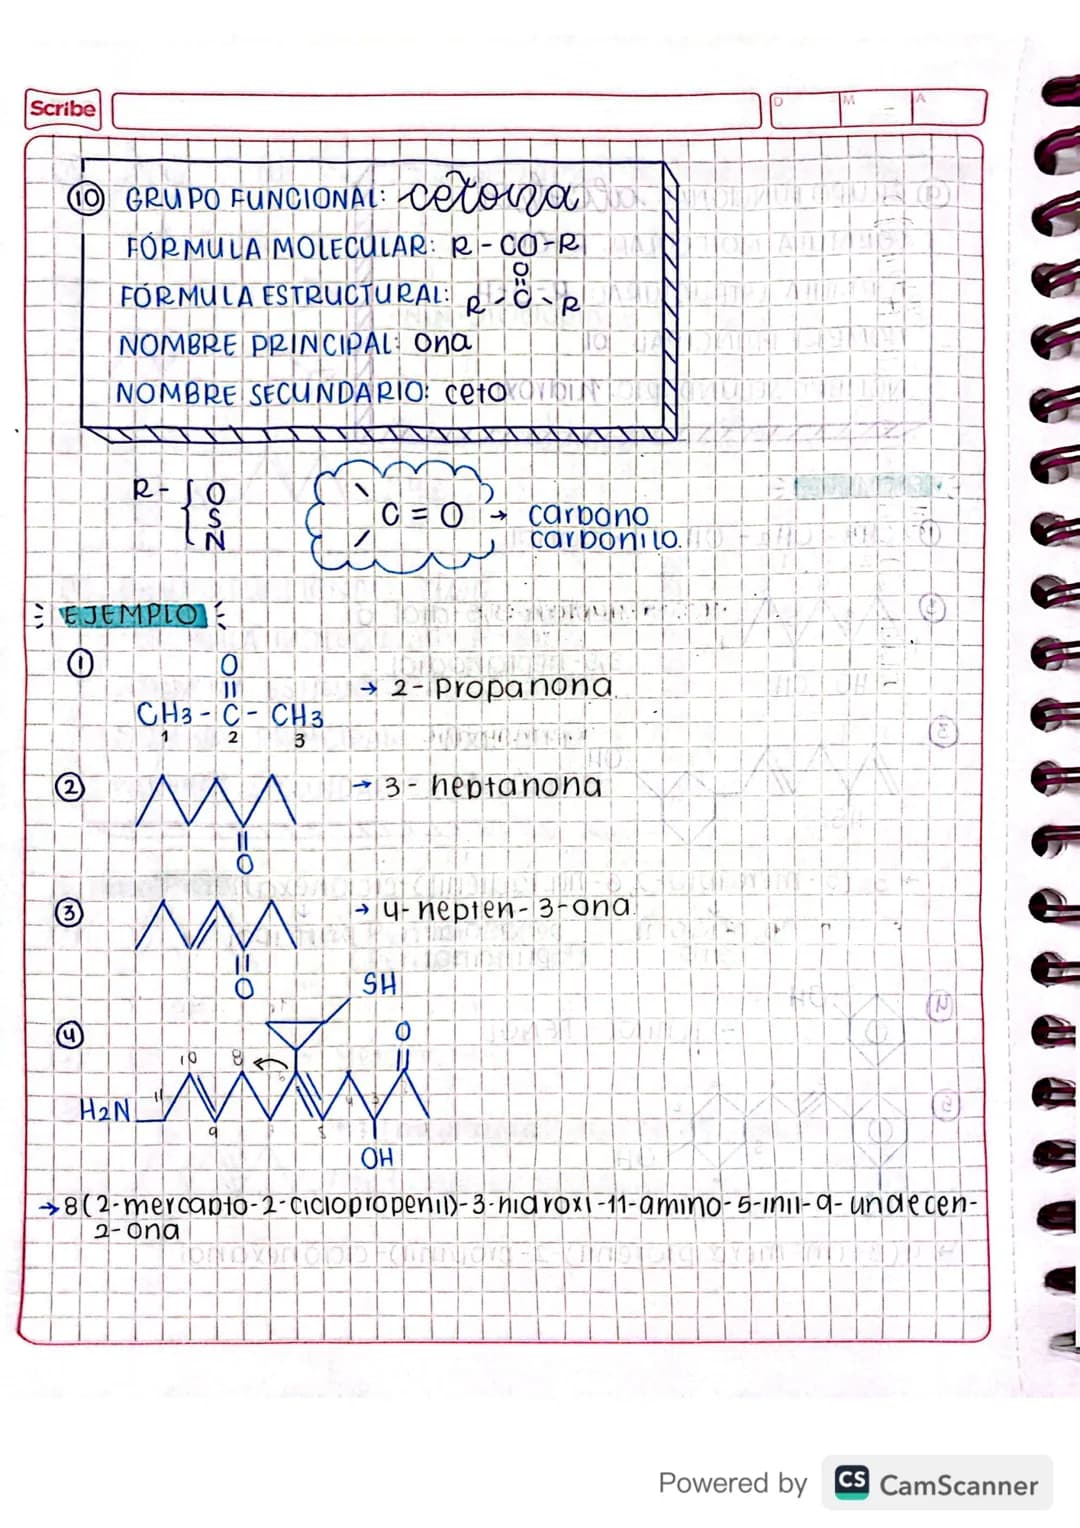 Scribe
D M A
10 GRUPO FUNCIONAL: cetona
FÓRMULA MOLECULAR: R-CO-R
O
FÓRMULA ESTRUCTURAL: R-C-R
NOMBRE PRINCIPAL: ona
NOMBRE SECUNDARIO: ceto
R- { O
S
N
C = O → carbono
carbonilo.
EJEMPLO
1
O
CH3 - C - CH3 → 2-Propanona.
1 2 3
2 → 3- heptanona
O
3 → 4-hepten-3-ona.
O
SH
4
O
10 8
11
H2N
9 5
OH
→8(2-mercapto-2-ciclopropenil)-3-hidroxi-11-amino-5-inil-9-undecen-
2-ona
Powered by CS CamScanner